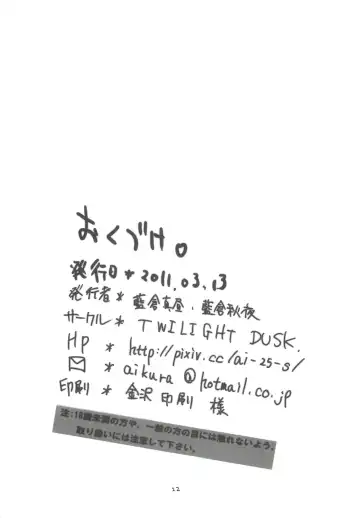 おくづけ。
発行日 * 2011.03.13
発行者 * 藍倉真昼・藍倉秋夜
サークル * TWILIGHT DUSK.
HP * http://pixiv.cc/ai-25-s/
✉ * aikura@hotmail.co.jp
印刷 * 金沢印刷 様
注:18歳未満の方や、一般の方の目には触れないよう、
取り扱いには注意して下さい。
22